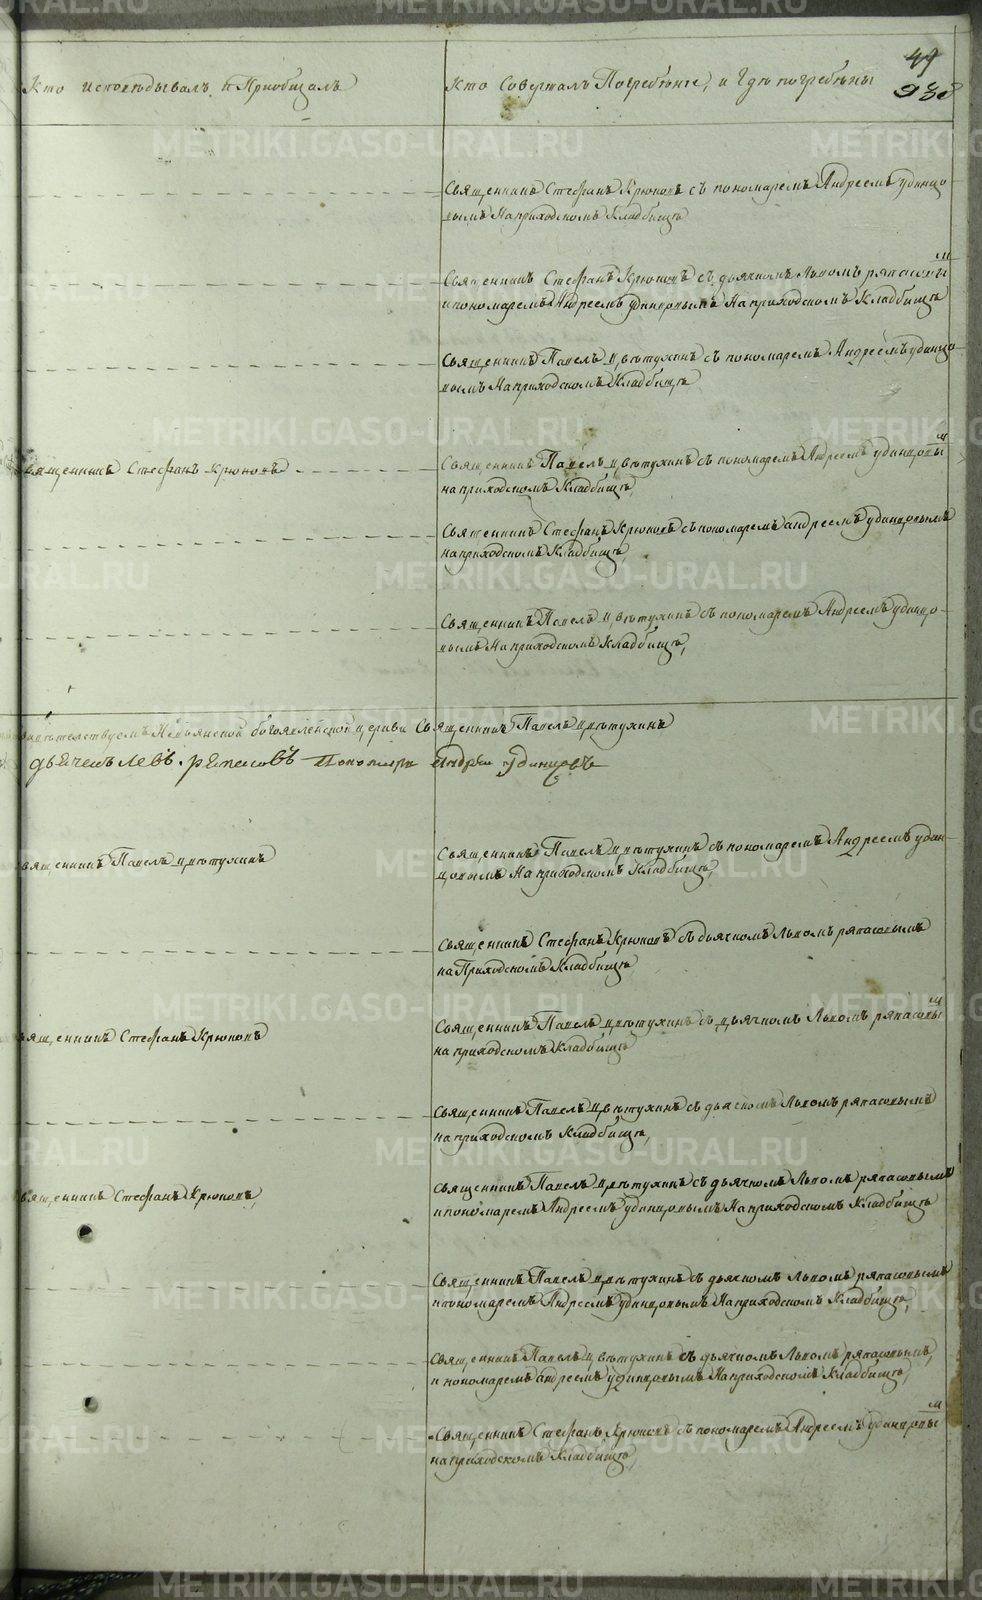 Кто исповѣдывалъ и Приобщалъ
Кто Совершалъ Погребѣние, и Гдѣ погребѣны
49
Священникъ Стефанъ Крюковъ съ пономаремъ Андреемъ удинцо-
вымъ На приходскомъ Кладбищѣ
Священникъ Стефанъ Крюковъ съ дьячкомъ Львомъ ряпасовым
и пономаремъ Андреемъ удинцовымъ На приходскомъ Кладбищѣ
Священникъ Павелъ Цвѣтухинъ съ пономаремъ Андреемъ удинцо-
вымъ На приходскомъ Кладбищѣ
священникъ Стефанъ Крюковъ
Священникъ Павелъ Цвѣтухинъ съ пономаремъ Андреемъ удинцовым
на приходскомъ Кладбищѣ,
Священникъ Стефанъ Крюковъ съ пономаремъ андреемъ удинцовымъ
на приходскомъ Кладбищѣ,
Священникъ Павелъ Цвѣтухинъ съ пономаремъ Андреемъ удинцо-
вымъ На приходскомъ Кладбищѣ,
свидѣтелствуемъ Невьянской богоявленской церкви Священникъ Павелъ Цвѣтухинъ
дьячекъ левъ ряпасовъ Пономарь Андрей Удинцовъ
священникъ Павелъ Цвѣтухинъ
Священникъ Павелъ Цвѣтухинъ съ пономаремъ Андреемъ удин-
цовымъ На приходскомъ Кладбищѣ,
Священникъ Стефанъ Крюковъ съ дьячкомъ Львомъ ряпасовымъ
на Приходскомъ Кладбищѣ
священникъ Стефанъ Крюковъ
Священникъ Павелъ Цвѣтухинъ съ дьячкомъ Львомъ ряпасовым
на приходскомъ Кладбищѣ
Священникъ Павелъ Цвѣтухинъ съ дьячкомъ Львомъ ряпасовымъ
на приходскомъ Кладбищѣ,
священникъ Стефанъ Крюковъ,
Священникъ Павелъ Цвѣтухинъ съ дьячкомъ Львомъ ряпасовымъ
и пономаремъ Андреемъ удинцовымъ На приходскомъ Кладбищѣ
Священникъ Павелъ Цвѣтухинъ съ дьячкомъ Львомъ ряпасовымъ
и пономаремъ Андреемъ удинцовымъ На приходскомъ Кладбищѣ,
Священникъ Павелъ Цвѣтухинъ съ дьячкомъ Львомъ ряпасовымъ,
и пономаремъ андреемъ удинцовымъ На приходскомъ Кладбищѣ,
Священникъ Стефанъ Крюковъ съ пономаремъ Андреемъ Удинцовым
на приходскомъ Кладбищѣ,
METRIKI.GASO-URAL.RU